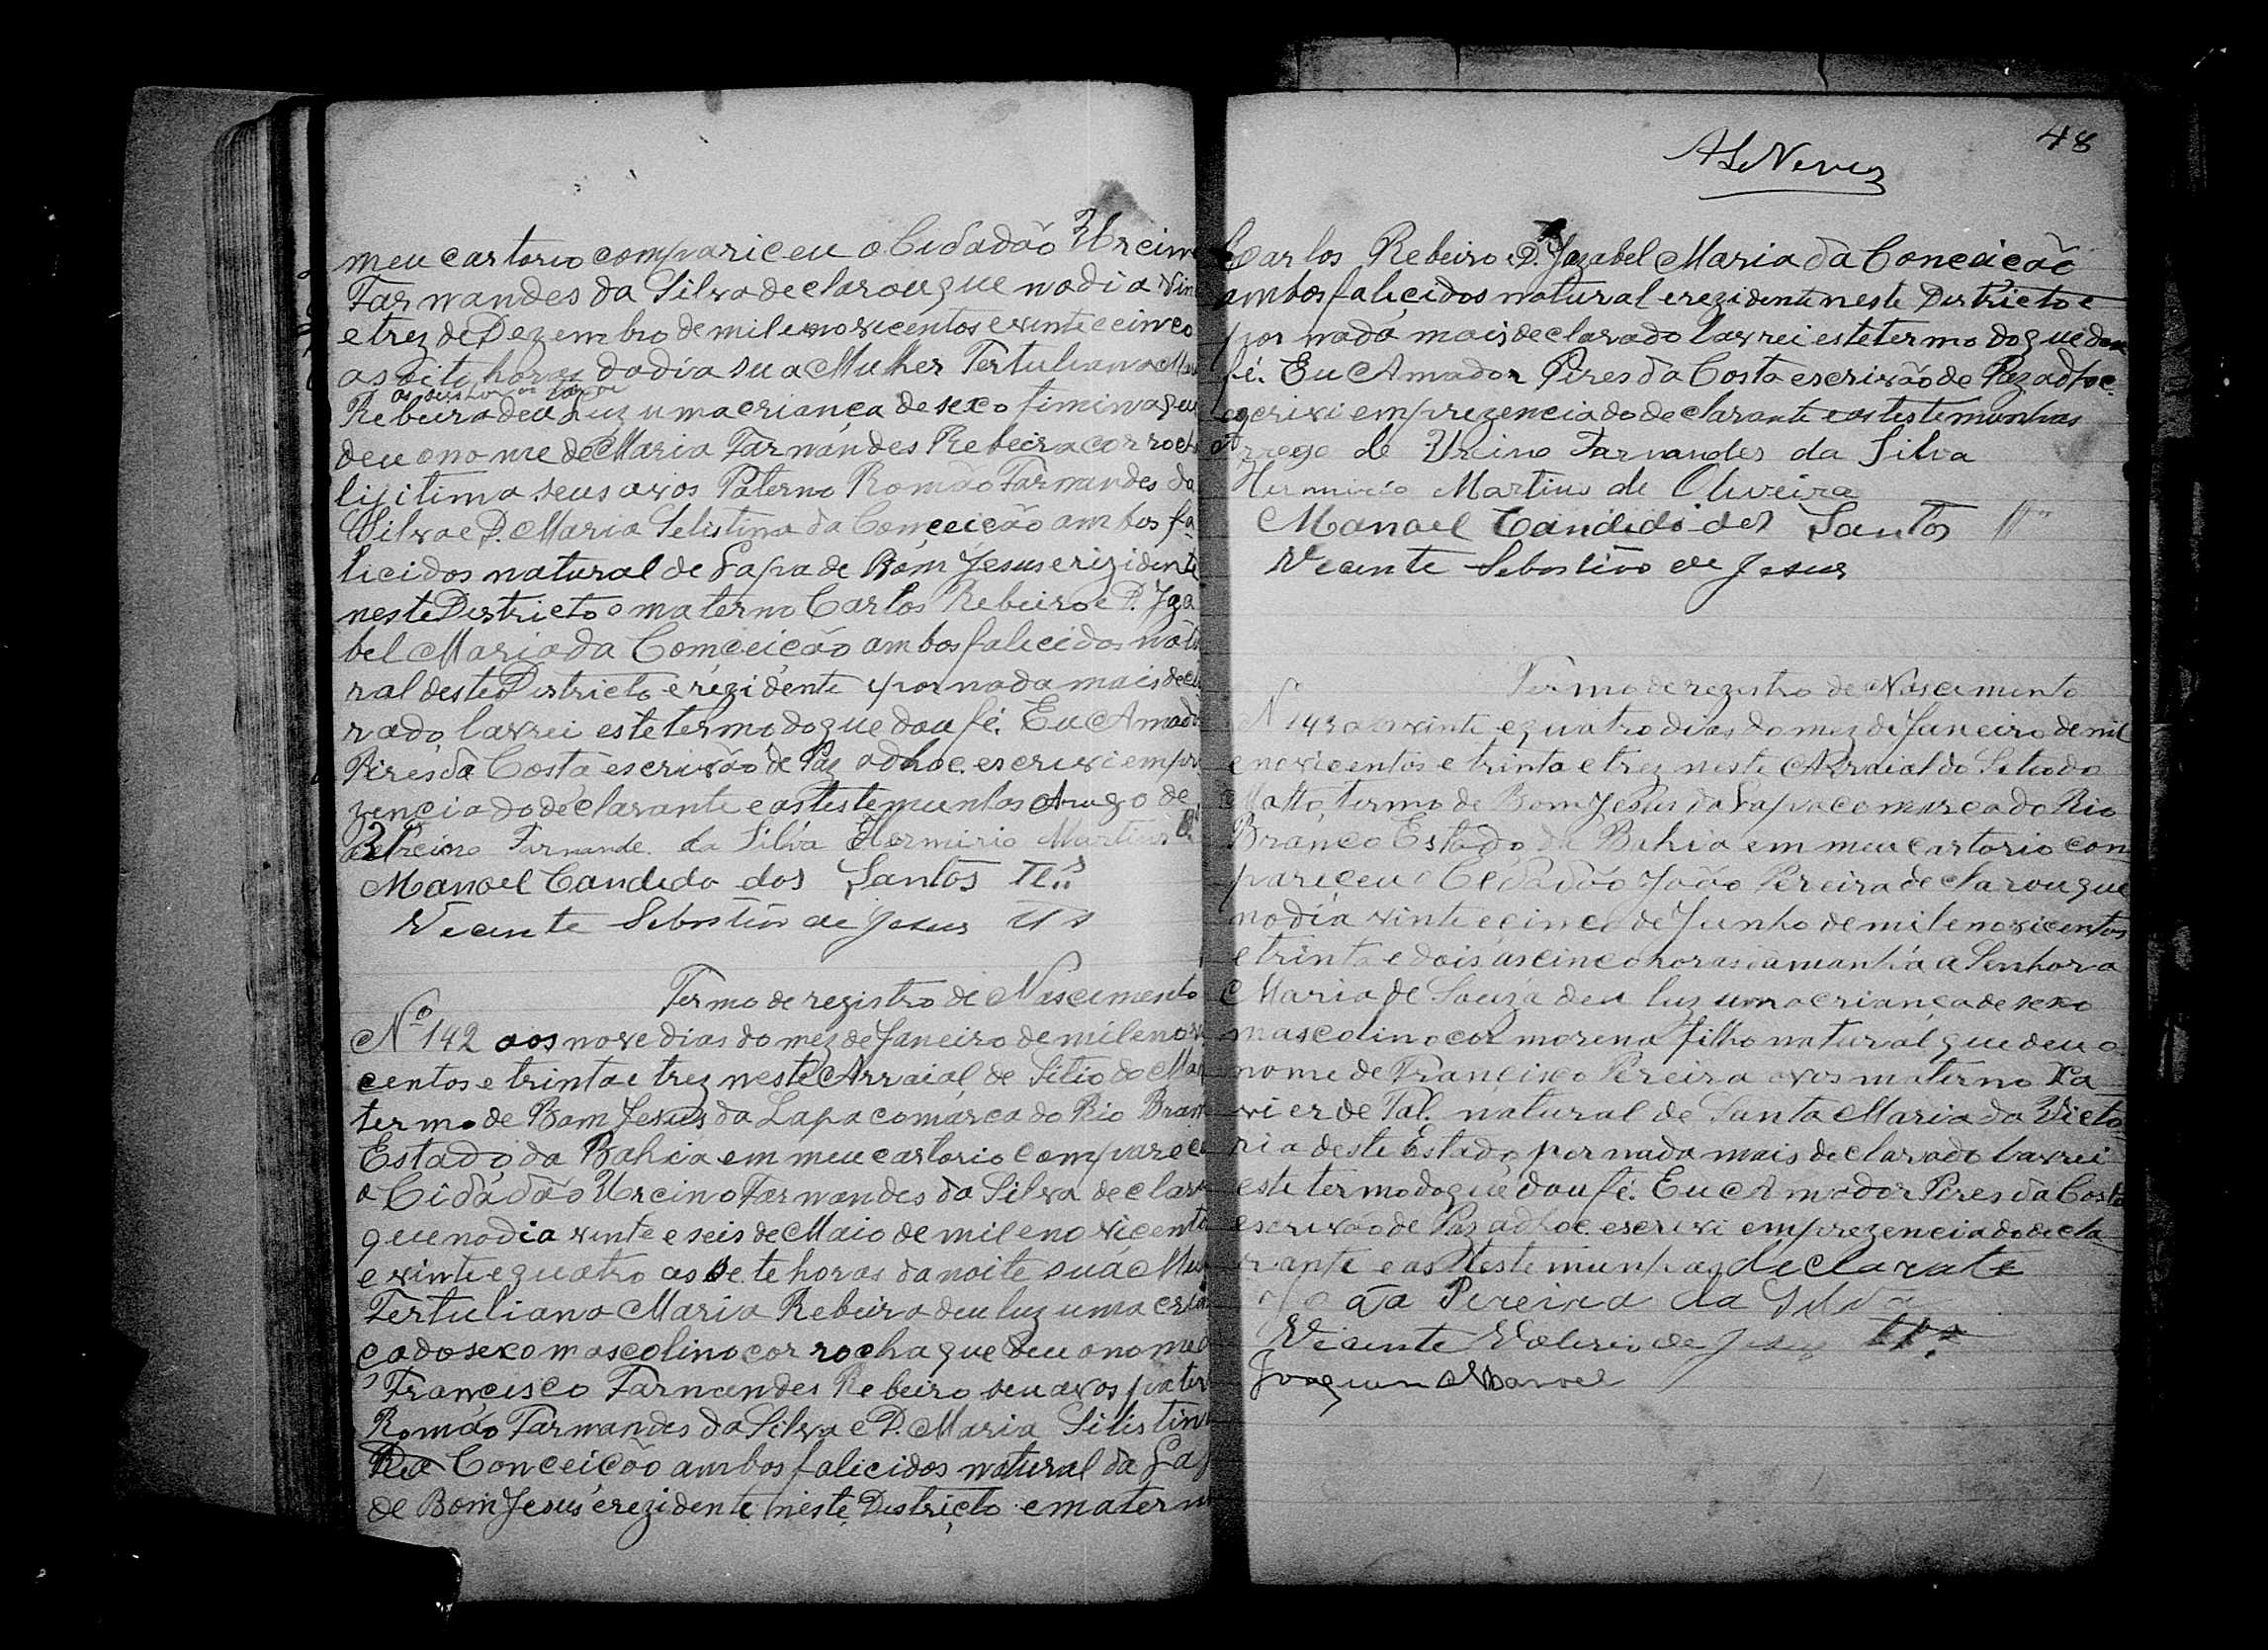 meu cartorio compariceu o Cidadão Urcino
Farnandes da Silva declarou que no dia vin
e trez de Dezembro de mil e novicentos e vinte e cinco
as oito horas do dia sua Mulher Tertuliana Mar
Rebeira deu Luz uma criança de sexo fimina que
deu o nome de Maria Farnandes Rebeira cor rocha
ligitima seus avos Paterno Romão Farnandes da
Silva e D. Maria Selistina da Comceicão ambos fa
licidos natural de Lapa de Bom Jesus e rizidente
neste Districto e materno Carlos Rebeiro e D. Iza
bel Maria da Comceicão ambos falicidos natu
ral deste Districto e rezidente e por nada mais decla
rado lavrei este termo do que dou fé. Eu Amador
Pires da Costa escrivão de Paz adhoc. escrivi em pre
zencia do declarante e as testemunhas Arrogo de
Urcino Farnande da Silva Hermirio Martins
Manoel Candido dos Santos Tt.as
Vicente Sebastião de Jesus Tts
Termo de registro de Nascimento
Nº 142 aos nove dias do mez de Janeiro de mil e novi
centos e trinta e trez neste Arraial de Sitio do Mat
termo de Bom Jesus da Lapa comarca do Rio Bran
Estado da Bahia em meu cartorio compareceu
o Cidadão Urcino Farnandes da Silva declarou
que no dia vinte e seis de Maio de mil e novicento
e vinte e quatro as sete horas da noite sua Mu
Tertuliana Maria Rebeira deu luz uma crian
ça do sexo mascolino cor rocha que deu o nome
Francisco Farnandes Rebeiro seu avos pater
Romão Farnandes da Silva e D. Maria Silistina
da Conceicão ambos falicidos natural da Lap
de Bom Jesus e rezidente neste Districto e matern
48
ASNeves
Carlos Rebeiro e D. Izabel Maria da Conceicão
ambos falicidos natural e rezidente neste Districto e
por nada mais declarado lavrei este termo do que dou
fé. Eu Amador Pires da Costa escrivão de Paz adhoc.
escrivi em prezencia do declarante e as testemunhas
Arrogo de Urcino Farnandes da Silva
Hermirio Martins de Oliveira
Manoel Candido des Santos
Vicente Sebastião de Jesus
Termo de registro de Nascimento
N 143 aos vinte e quatro dias do mez de Janeiro de mil
e novicentos e trinta e trez neste Arraial do Sitio do
Matto, termo de Bom Jesus da Lapa comarca do Rio
Branco Estado da Bahia em meu cartorio con
pariceu o Cidadão João Pereira declarou que
no dia vinte e cinco de Junho de mil e novicentos
e trinta e dois as cinco horas da manhã a Senhora
Maria de Souza deu luz uma criança de sexo
mascolino cor morena filho natural que deu o
nome de Francisco Pereira avos materno Xa
vier de Tal. natural de Santa Maria da Victo
ria deste Estado por nada mais declarado lavrei
este termo do que dou fé. Eu Amador Pires da Costa
escrivão de Paz adhoc. escrivi em prezencia do decla
rante e as testimunhas declarate
João Pereira da Silva
Vicente Valerio de Jesus Tt.a
Joaquim Manoel